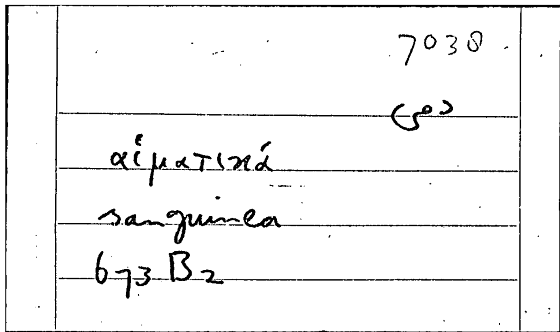 7030
αἱματικά
sanguinea
673 B2